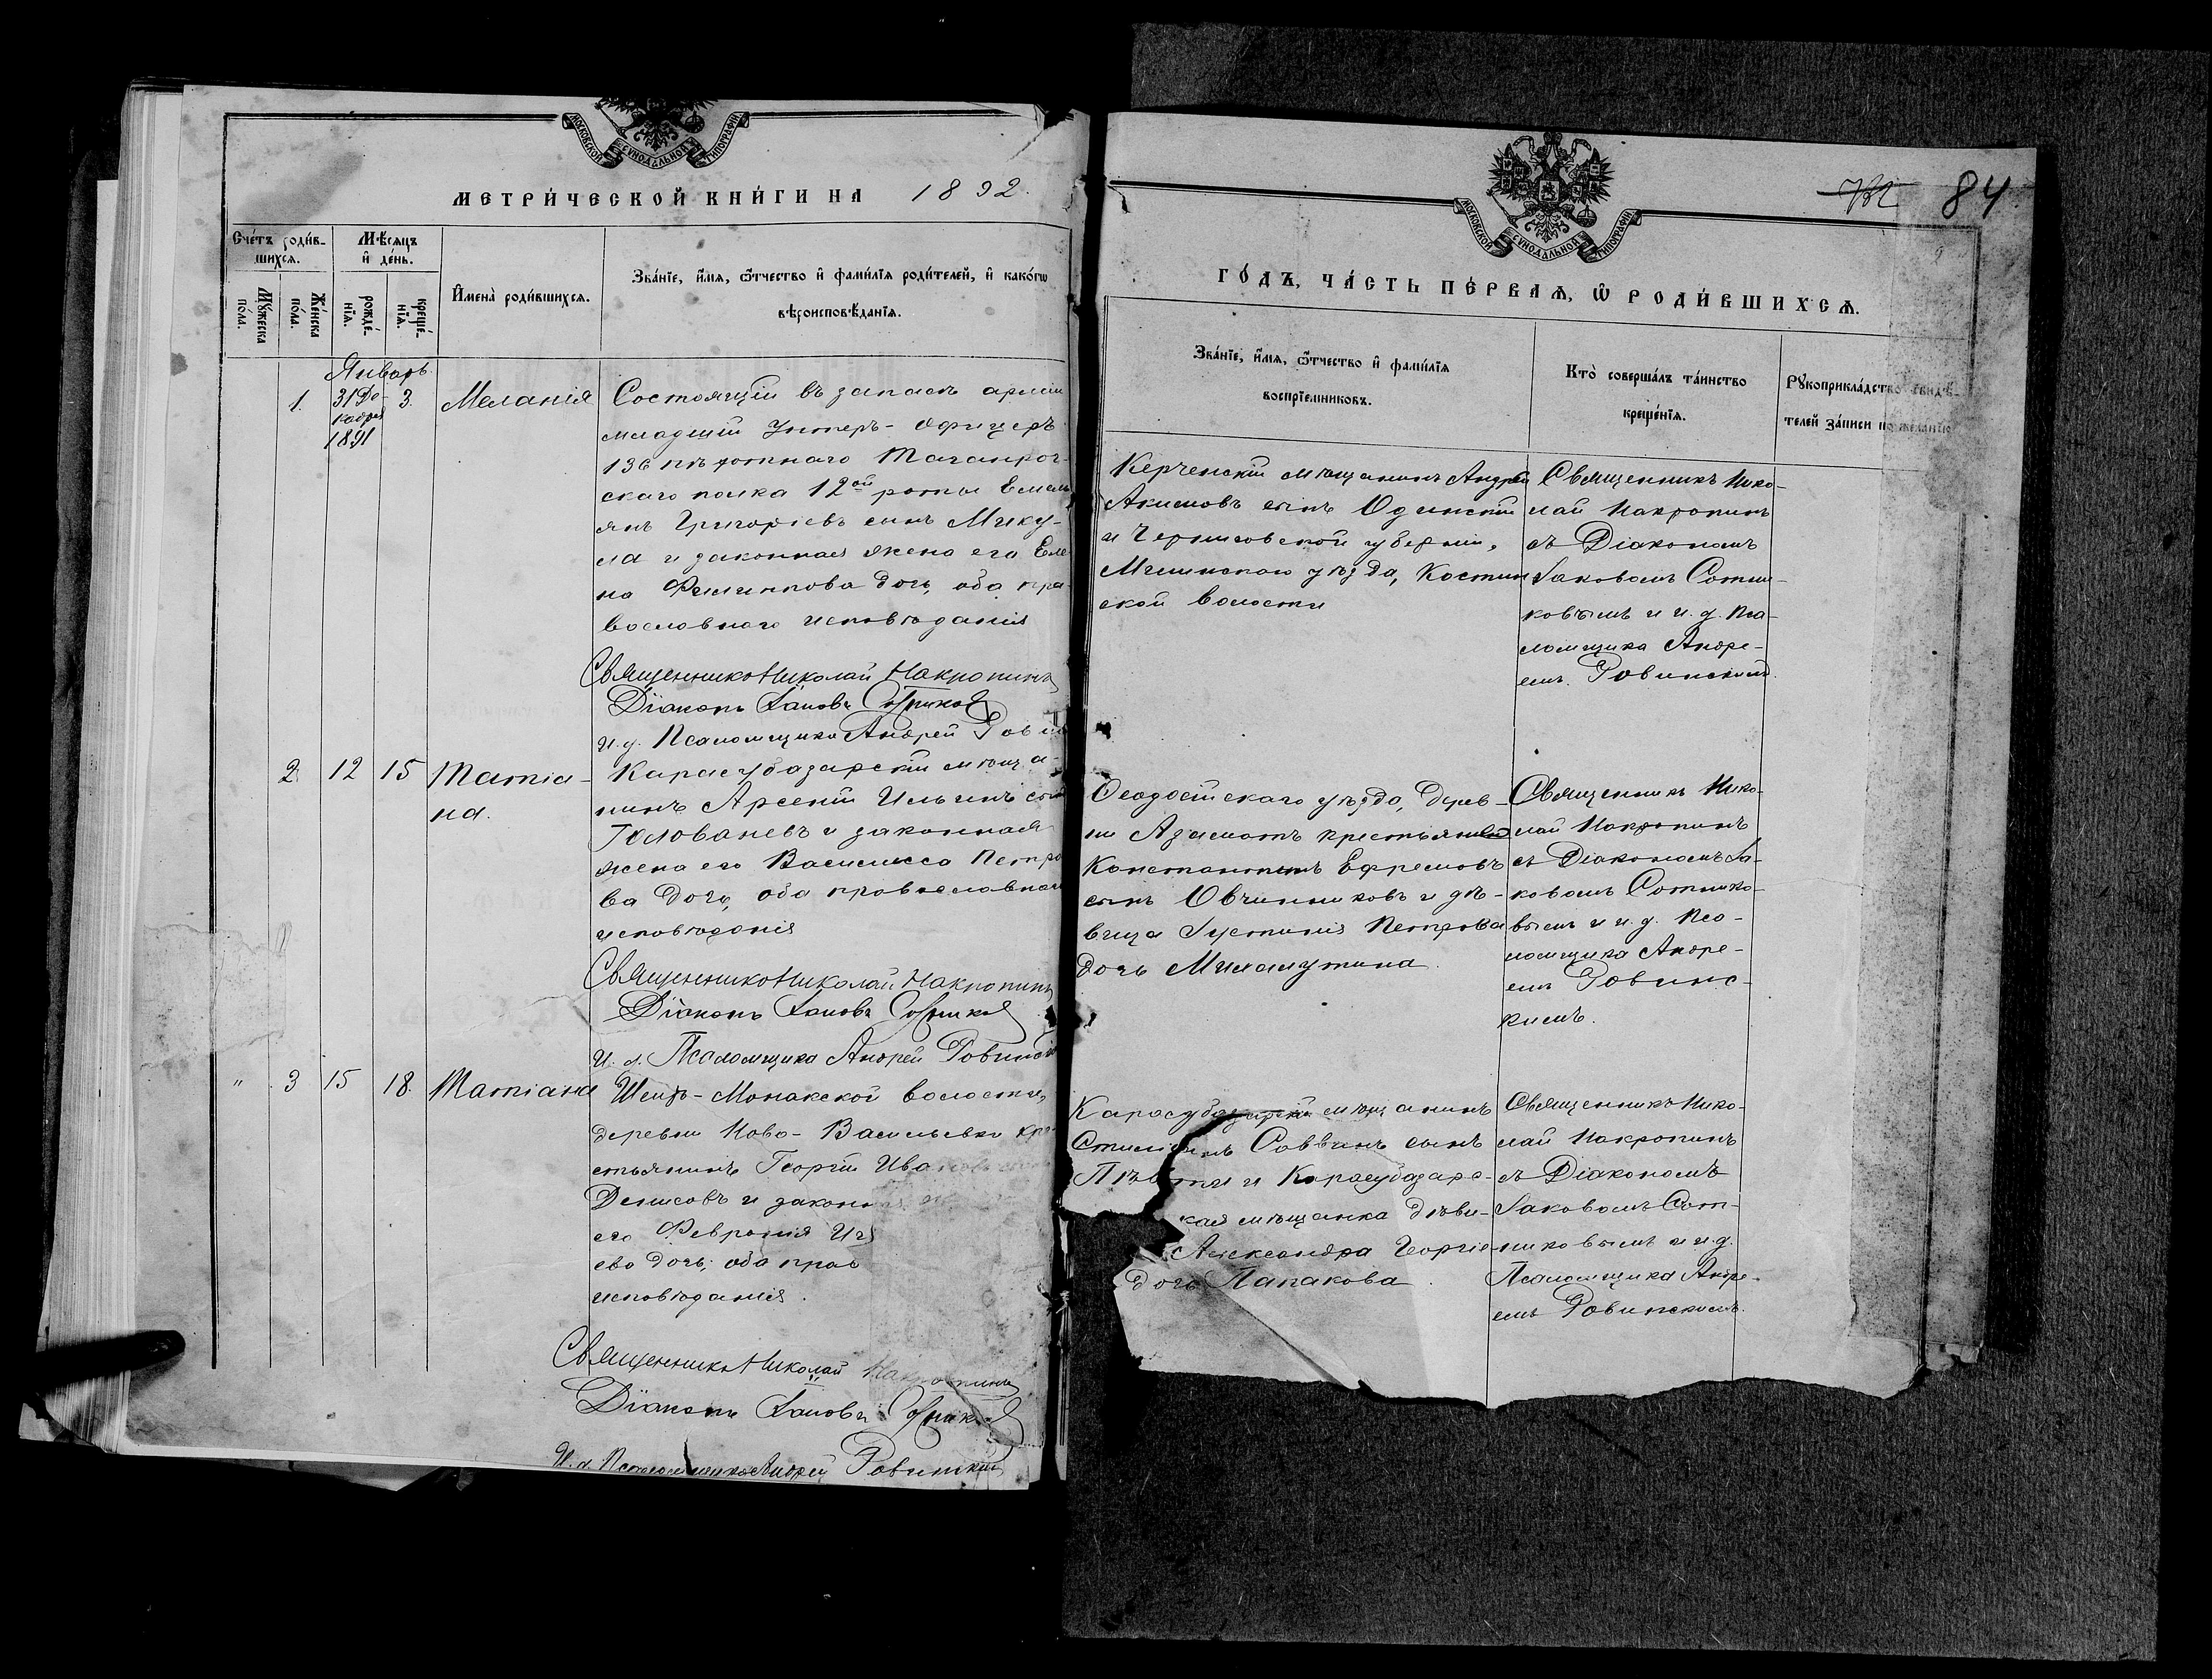 МОСКОВСКОЙ СѴНОДАЛЬНОЙ ТИПОГРАФІИ
МЕТРИ́ЧЕСКОЙ КНИ́ГИ НА 1892.
Сче́тъ роди́в-
шихся.
Мѣ́сяцъ
и҆ де́нь.
Мꙋ́жеска
по́ла.
Же́нска
по́ла.
рожде́-
нїѧ.
креще́-
нїѧ.
И҆мена̀ роди́вшихсѧ.
Зва́нїе, и҆́мѧ, ѻ҆́тчество и҆ фами́лїѧ роди́телей, и҆ како́гѡ
вѣроисповѣ́данїѧ.
Январь.
1. 31 Де- 3. Меланія
кабря
1891
Состоящій въ запасѣ арміи
младшій Унтеръ-Офицеръ
136 пѣхотнаго Таганрог-
скаго полка 12ой роты Емель
янъ Григоріевъ сынъ Мику-
ла и законная жена его Еле
на Филиппова дочь, оба пра-
вославнаго исповѣданія
Священникъ Николай Накропинъ
Діаконъ Іаковъ Сотников
И. д. Псаломщика Андрей Ровин
2 12 15 Татіа-
на.
Карасубазарскій мѣща-
нинъ Арсеній Ильинъ сынъ
Голованевъ и законная
жена его Василисса Петро
ва дочь, оба православнаго
исповѣданія
Священникъ Николай Накропинъ
Діаконъ Іаковъ Сотников
И. д. Псаломщика Андрей Ровинскій
" 3 15 18. Татіана
Шейхъ-Монакской волости,
деревни Ново-Васильевки кре-
стьянинъ Георгій Ивановъ
Денисовъ и законная
его Февронія Иг
ева дочь, оба прав
исповѣданія.
Священникъ Николай Накропинъ
Діаконъ Іаковъ Сотников
И. д. Псаломщика Андрей Ровинскій
84
МОСКОВСКОЙ СѴНОДАЛЬНОЙ ТИПОГРАФІИ
ГО́ДЪ, ЧА́СТЬ ПЕ́РВАѦ, Ѡ҆ РОДИ́ВШИХСѦ.
Зва́нїе, и҆́мѧ, ѻ҆́тчество и҆ фами́лїѧ
воспрїе́мниковъ.
Кто̀ соверша́лъ та́инство
креще́нїѧ.
Рꙋкоприкла́дство свидѣ́-
телей за́писи по жела́нїю
Керченскій мѣщанинъ Андрей
Акимовъ сынъ Одинскій
и Черниговской губерніи,
Мглинскаго уѣзда, Костин
ской волости
Священникъ Нико-
лай Накропинъ
съ Діакономъ
Іаковомъ Сотни-
ковымъ и и. д. Пса-
ломщика Андре-
емъ Ровинскимъ.
Ѳеодосійскаго уѣзда, дерев-
ни Азаматъ крестьянинъ
Константинъ Ефремовъ
сынъ Овчинниковъ и дѣ-
вица Іустинія Петрова
дочь Милашутина.
Священникъ Нико-
лай Накропинъ
съ Діакономъ Іа-
ковомъ Сотнико-
вымъ и и. д. Пса-
ломщика Андре-
емъ Ровинс-
кимъ.
Карасубазарскій мѣщанинъ
Саввинъ сынъ
и Карасубазарс-
кая мѣщанка дѣви-
Александра Георгіе-
дочь Папакова.
Священникъ Нико-
лай Накропинъ
съ Діакономъ
Іаковомъ Сот-
никовымъ и и. д.
Псаломщика Андре-
емъ Ровинскимъ.